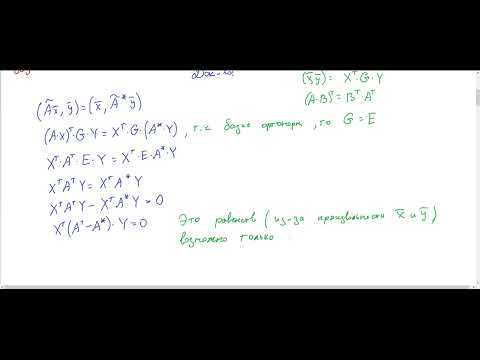 Док-во
(x̄,ȳ) = Xᵀ·G·Y
(A·B)ᵀ = Bᵀ·Aᵀ
(Ãx̄, ȳ) = (x̄, Ã*ȳ)
(A·X)ᵀ·G·Y = Xᵀ·G·(A*·Y), т.к базис ортонорм, то G = E
Xᵀ·Aᵀ·E·Y = Xᵀ·E·A*·Y
XᵀAᵀY = XᵀA*Y
XᵀAᵀY − XᵀA*Y = 0
Xᵀ(Aᵀ−A*)·Y = 0
Это равенств (из-за произвольности x̄ и ȳ)
возможно только